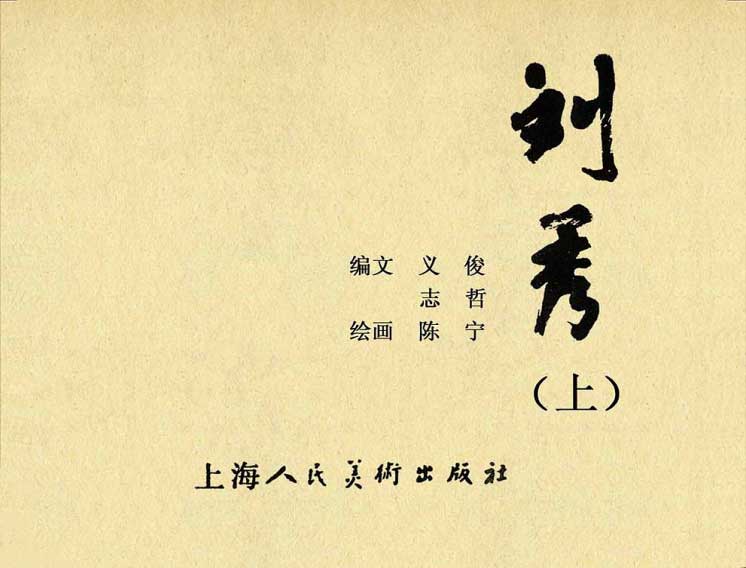 刘秀
（上）
编文 义俊
志哲
绘画 陈宁
上海人民美術出版社